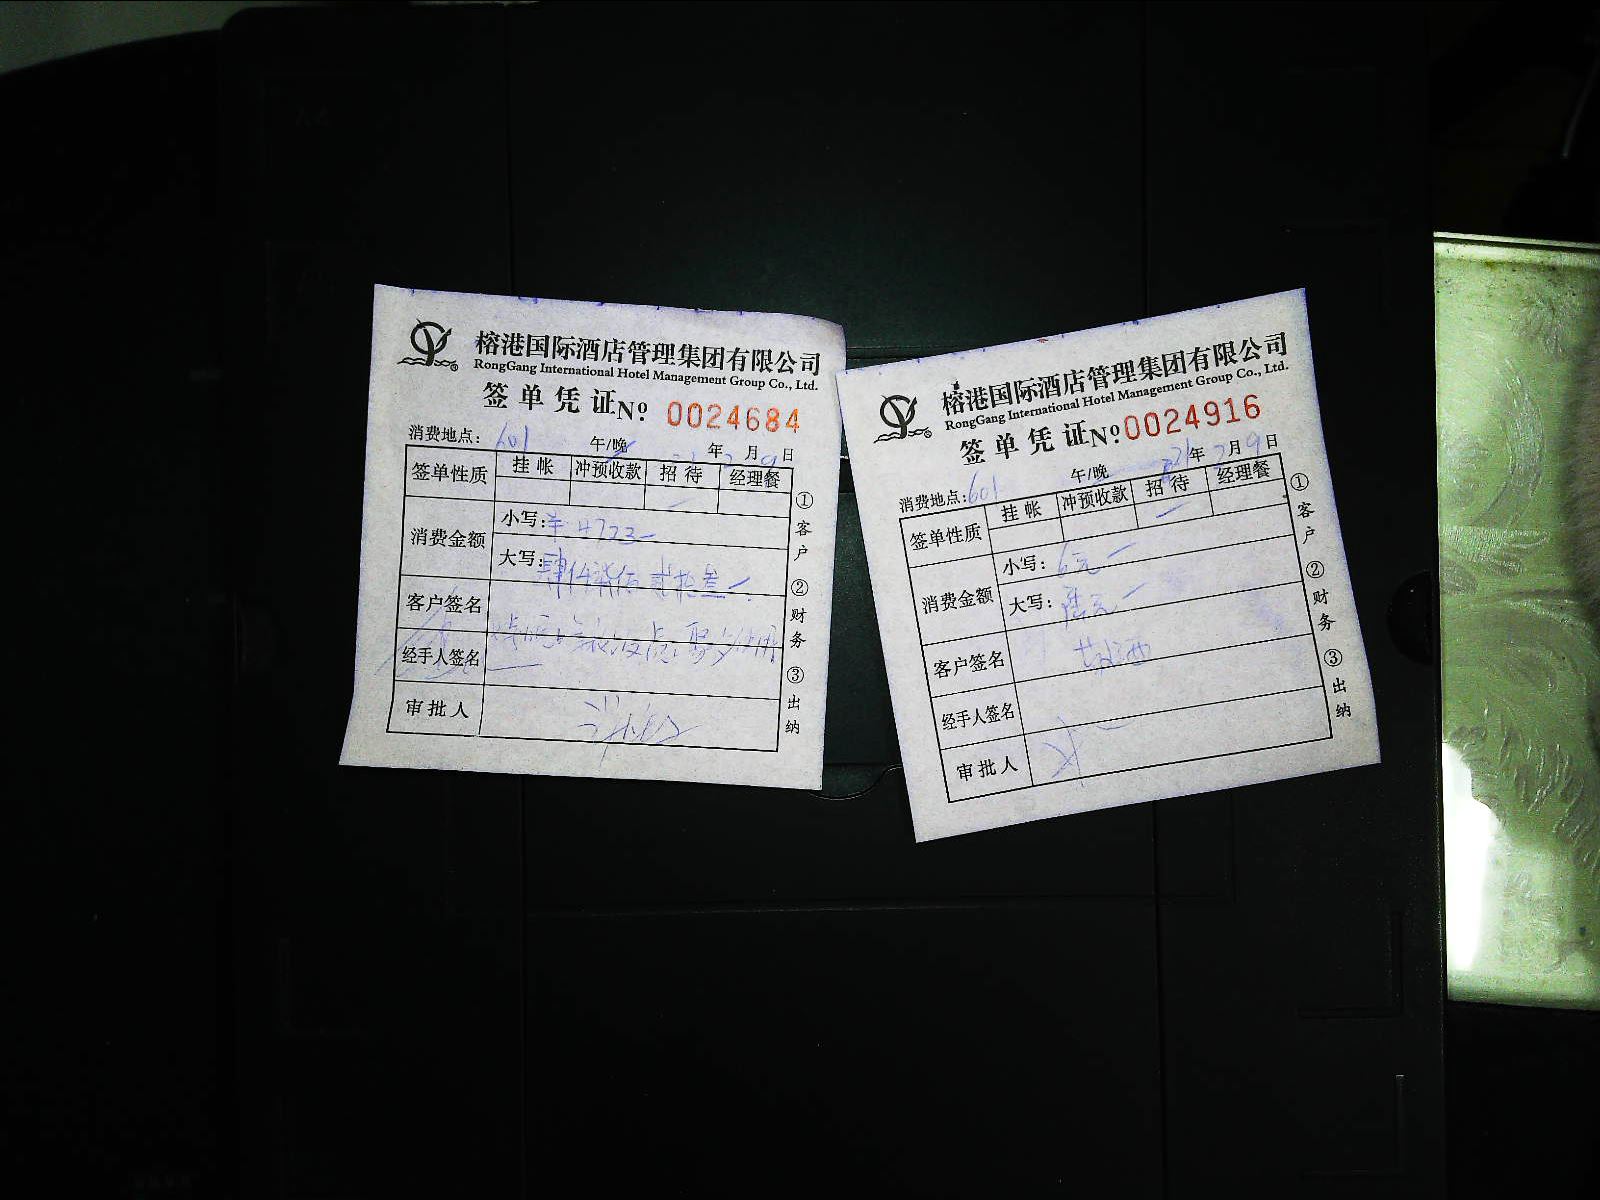 榕港国际酒店管理集团有限公司
RongGang International Hotel Management Group Co., Ltd.
签单凭证№ 0024684
消费地点：601 午/晚 年 月 9 日
签单性质 挂帐 冲预收款 招待 经理餐
消费金额
小写：4723
大写：肆仟柒佰贰拾叁
客户签名
经手人签名
审批人
①客户 ②财务 ③出纳
榕港国际酒店管理集团有限公司
RongGang International Hotel Management Group Co., Ltd.
签单凭证№ 0024916
消费地点：601 午/晚 21年 月9日
签单性质 挂帐 冲预收款 招待 经理餐
消费金额
小写：6元
大写：陆元
客户签名
经手人签名
审批人
①客户 ②财务 ③出纳